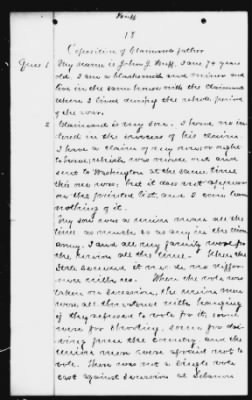 18
Deposition of Claimants father
Ques 1 My name is John J. Huff. I am 74 years
old. I am a blacksmith and miner and
live in the same house with the claimant
where I lived during the rebel period
of the war.
2 Claimant is my son. I have no in-
terest in the success of his claim
I have a claim of my own or ought
to have, which was made out and
sent to Washington at the same time
this one was, but it does not appear
on the printed list, and I can learn
nothing of it.
My son was a union man all the
time as much so as any in the Union
army. I and all my family were for
the union all the time. When the
State seceded it made no differ-
ence with us. When the vote was
taken on secession, the union men
were all threatened with hanging
if they refused to vote for it, some
were for shooting, some for dri-
ving from the country, and the
union men were afraid not to
vote. There was not a single vote
cast against secession at Lebanon